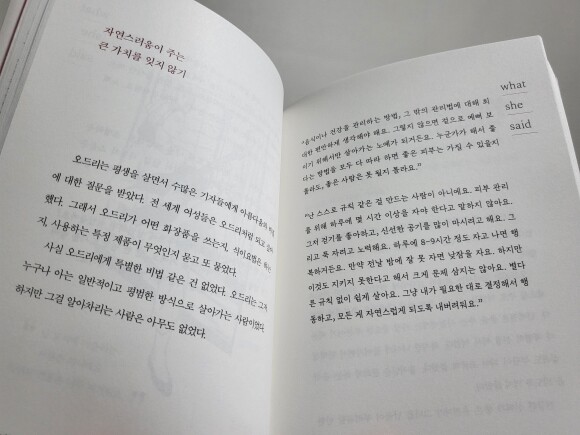 자연스러움이 주는
큰 가치를 잊지 않기
오드리는 평생을 살면서 수많은 기자들에게 아름다움과
에 대한 질문을 받았다. 전 세계 여성들은 오드리처럼 되고 싶어
했다. 그래서 오드리가 어떤 화장품을 쓰는지, 식이요법은
지, 사용하는 특정 제품이 무엇인지 묻고 또 물었다.
사실 오드리에게 특별한 비법 같은 건 없었다. 오드리는 그저
누구나 아는 일반적이고 평범한 방식으로 살아가는 사람이었다.
하지만 그걸 알아차리는 사람은 아무도 없었다.
what
she
said
“음식이나 건강을 관리하는 방법, 그 밖의 관리법에 대해 최
대한 편안하게 생각해야 해요. 그렇지 않으면 겉으로 예뻐 보
이기 위해서만 살아가는 노예가 되거든요. 누군가가 해서 좋
다는 방법을 모두 다 따라 하면 좋은 피부는 가질 수 있을지
몰라도, 좋은 사람은 못 될지 몰라요.”
“난 스스로 규칙 같은 걸 만드는 사람이 아니에요. 피부 관리
를 위해 하루에 몇 시간 이상을 자야 한다고 말하지 않아요.
그저 걷기를 좋아하고, 신선한 공기를 많이 마시려고 해요. 그
리고 푹 자려고 노력해요. 하루에 8~9시간 정도 자고 나면 행
복하거든요. 만약 전날 밤에 잘 못 자면 낮잠을 자요. 하지만
이것도 지키지 못한다고 해서 크게 문제 삼지는 않아요. 별다
른 규칙 없이 쉽게 살아요. 그냥 내가 필요한 대로 결정해서 행
동하고, 모든 게 자연스럽게 되도록 내버려둬요.”